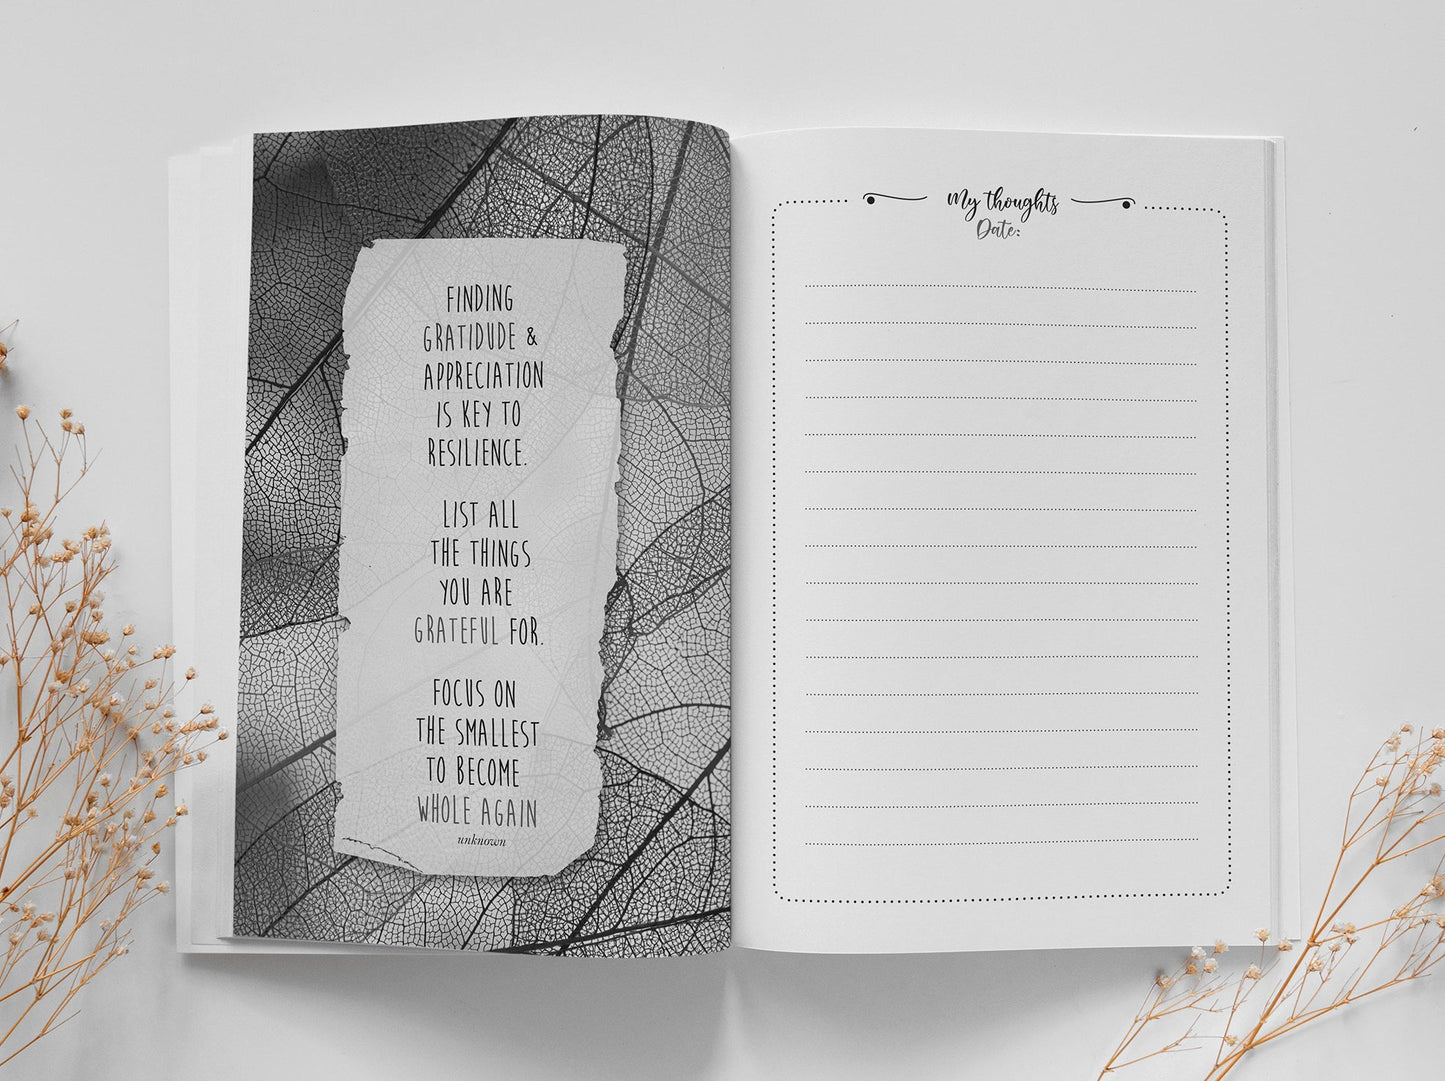 FINDING
GRATIDUDE &
APPRECIATION
IS KEY TO
RESILIENCE.
LIST ALL
THE THINGS
YOU ARE
GRATEFUL FOR.
FOCUS ON
THE SMALLEST
TO BECOME
WHOLE AGAIN
unknown
My thoughts
Date: